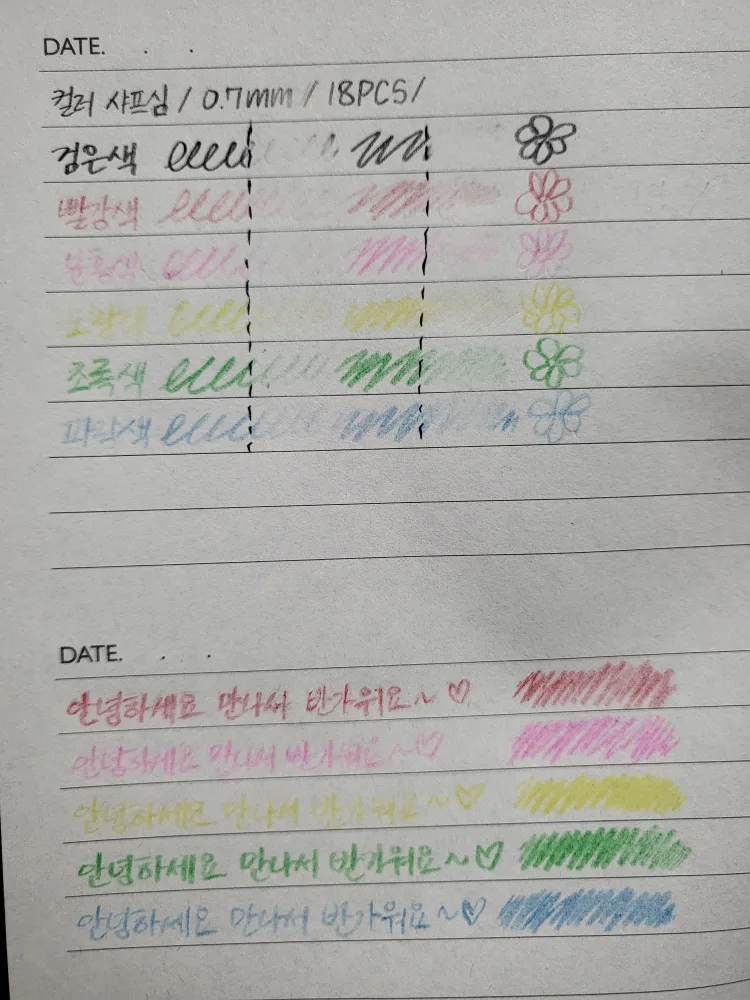 DATE. . .
컬러 샤프심 / 0.7mm / 18PCS/
검은색
빨강색
분홍색
노랑색
초록색
파랑색
DATE. . .
안녕하세요 만나서 반가워요~♡
안녕하세요 만나서 반가워요~♡
안녕하세요 만나서 반가워요~♡
안녕하세요 만나서 반가워요~♡
안녕하세요 만나서 반가워요~♡